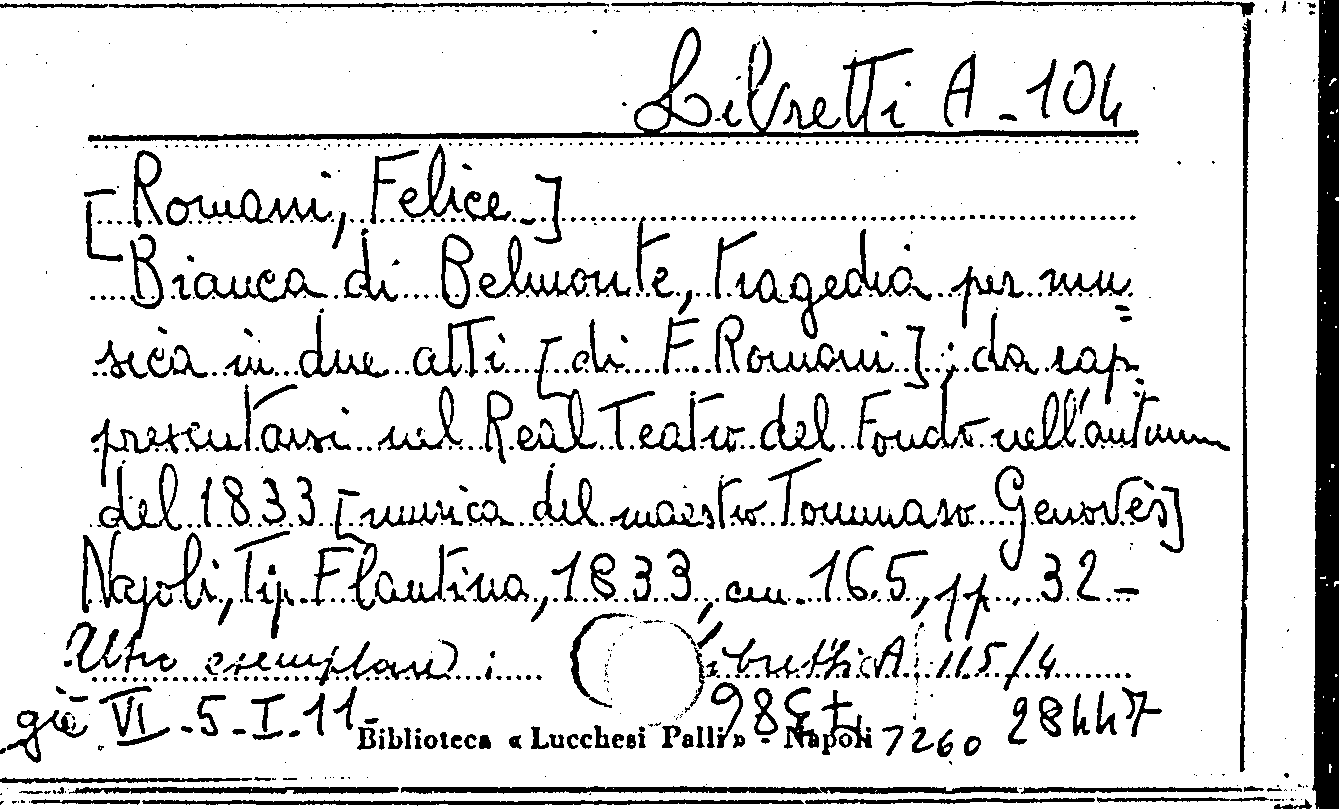 Libretti A-104
[Romani, Felice.]
Bianca di Belmonte, tragedia per mu=
sica in due atti [di F. Romani]; da rap=
presentarsi nel Real Teatro del Fondo nell'autunno
del 1833 [musica del maestro Tommaso Genovès]
Napoli, Tip. Flautina, 1833, cm. 16.5, pp. 32-
Altro esemplare: Libretti A 115/4
già VI-5-I-11- 28447
Biblioteca « Lucchesi Palli» - Napoli 7260